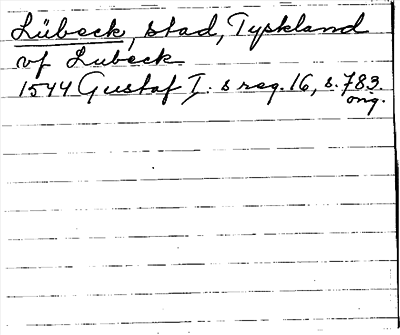 Lübeck, stad, Tyskland
vf Lubeck
1544 Gustaf I: s reg. 16, s. 783.
orig.